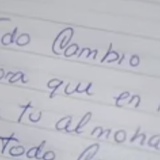 do Cambio
ora que en
tu almoha
Todo